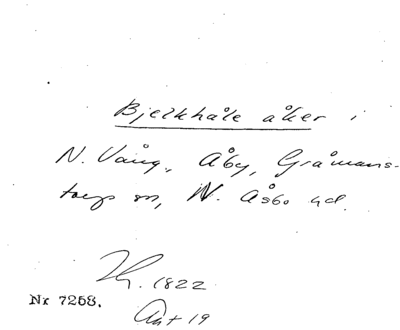 Bjelkhåle åker i
N. Vång, Åby, Gråmans-
torps sn, N. Åsbo hd.
1822
Nr 7268.
Akt 19